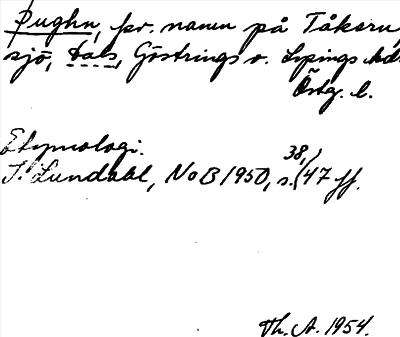 Øughn, fsv. namn på Tåkern,
sjö, Dals, Göstrings o. Lysings hdr
Östg. l.
Etymologi.
I. Lundahl, NoB 1950, s. (47 ff.
38,)
Th. A. 1954.